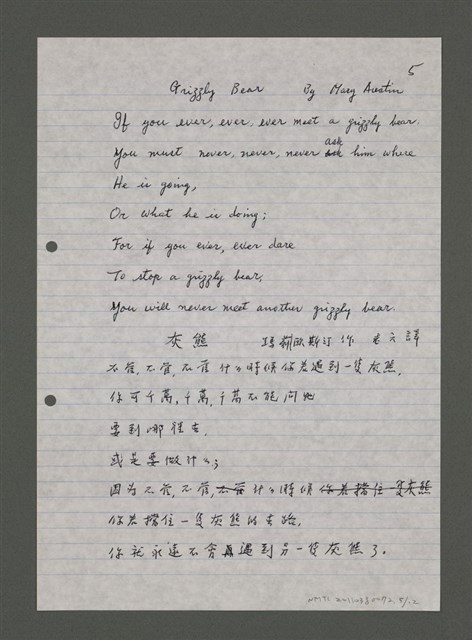 5
Grizzly Bear By Mary Austin
If you ever, ever, ever meet a grizzly bear.
You must never, never, never ask him where
He is going,
Or what he is doing;
For if you ever, ever dare
To stop a grizzly bear,
You will never meet another grizzly bear.
灰熊 瑪莉歐斯汀 作 譯
不管,不管,不管什么時候你若遇到一隻灰熊,
你可千萬,千萬,千萬不能問他
要到哪裡去,
或是要做什么;
因为不管,不管,不管什么時候你若擋住一隻灰熊
你若擋住一隻灰熊的去路,
你就永遠不會再遇到另一隻灰熊了。